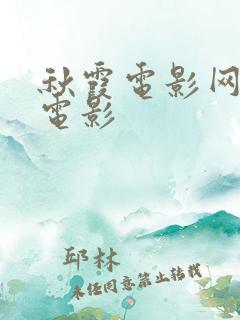 秋霞电影网
电影
邱林
未经同意禁止转载